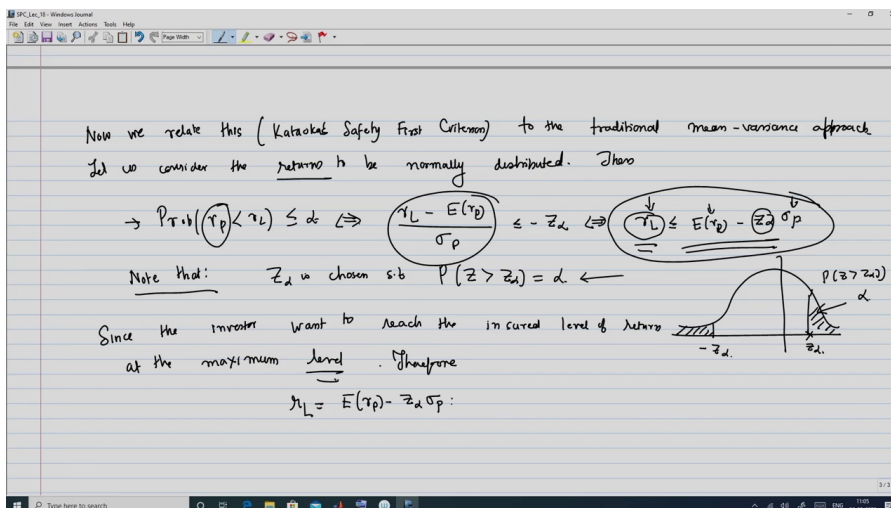 SPC_Lec_18 - Windows Journal
File Edit View Insert Actions Tools Help
Page Width
Now we relate this (Kataoka's Safety First Criterion) to the traditional mean-variance approach
Let us consider the returns to be normally distributed. Then
→ Prob(r_p < r_L) ≤ α ⇔ (r_L - E(r_p))/σ_p ≤ - Z_α ⇔ r_L ≤ E(r_p) - Z_α σ_p
Note that: Z_α is chosen s.t P(Z > Z_α) = α ←
P(Z > Z_α)
α
- Z_α. Z_α.
Since the investor want to reach the insured level of return
at the maximum level . Therefore
r_L = E(r_p) - Z_α σ_p :
3/3
Type here to search
ENG
11:05